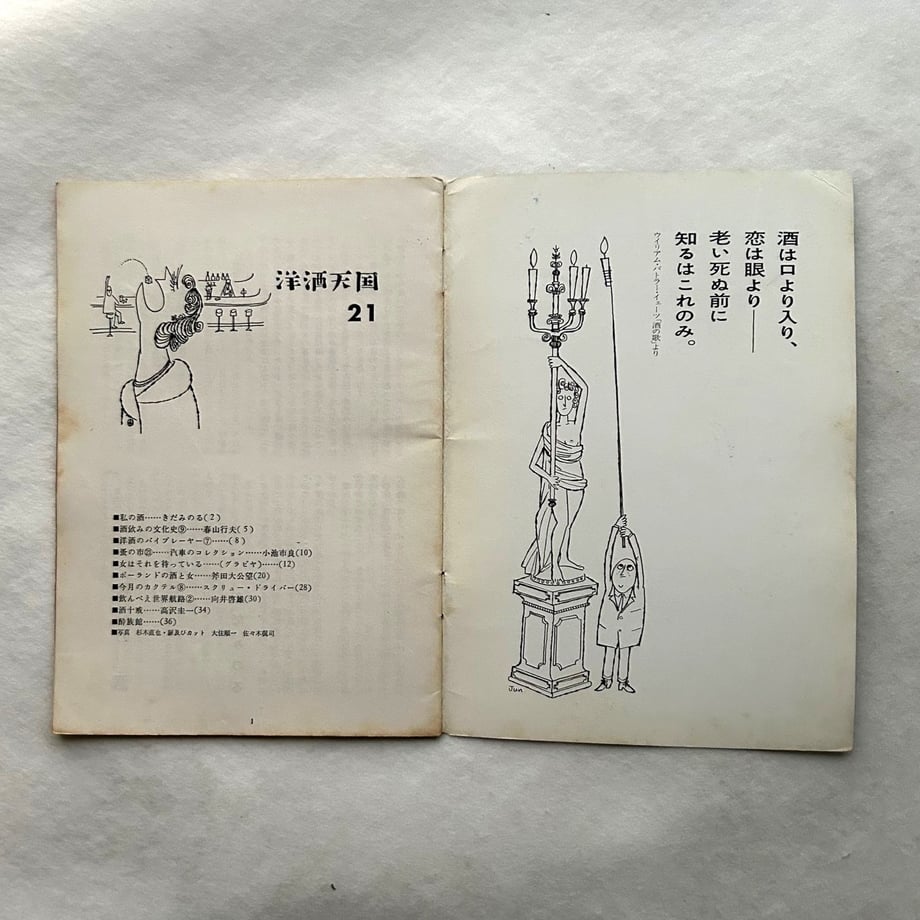 洋酒天国
21
■私の酒……きだみのる(2)
■酒飲みの文化史⑨……春山行夫(5)
■洋酒のバイプレーヤー⑦……(8)
■蚤の市㉑……汽車のコレクション……小池市良(10)
■女はそれを待っている……(グラビヤ)……(12)
■ポーランドの酒と女……斧田大公望(20)
■今月のカクテル⑧……スクリュー・ドライバー(28)
■飲んべえ世界航路②……向井啓雄(30)
■酒十戒……高沢圭一(34)
■酔族館……(36)
■写真 杉木直也・扉及びカット 大住順一 佐々木侃司
1
酒は口より入り、
恋は眼より――
老い死ぬ前に
知るはこれのみ。
ウイリアム・バトラー・イェーツ「酒の歌」より
Jun